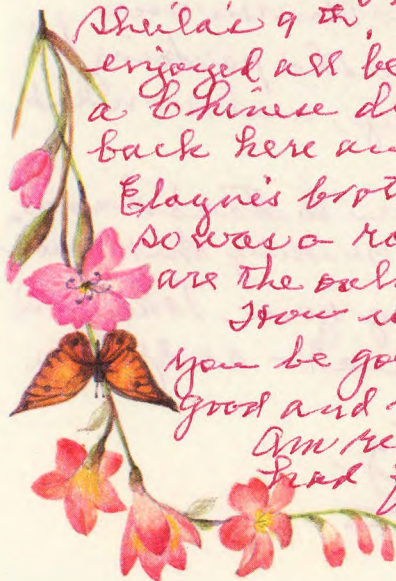 Sheila's 9th
enjoyed all be
a Chinese d
back here an
Elayne's
so was a
are the
How
you be go
good and
Am re
had